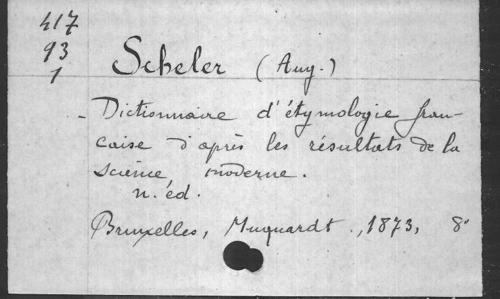 417
93
1
Scheler (Aug.)
- Dictionnaire d'étymologie fran-
caise d'après les résultats de la
science, moderne.
n. éd.
Bruxelles, Muquardt., 1873, 8°